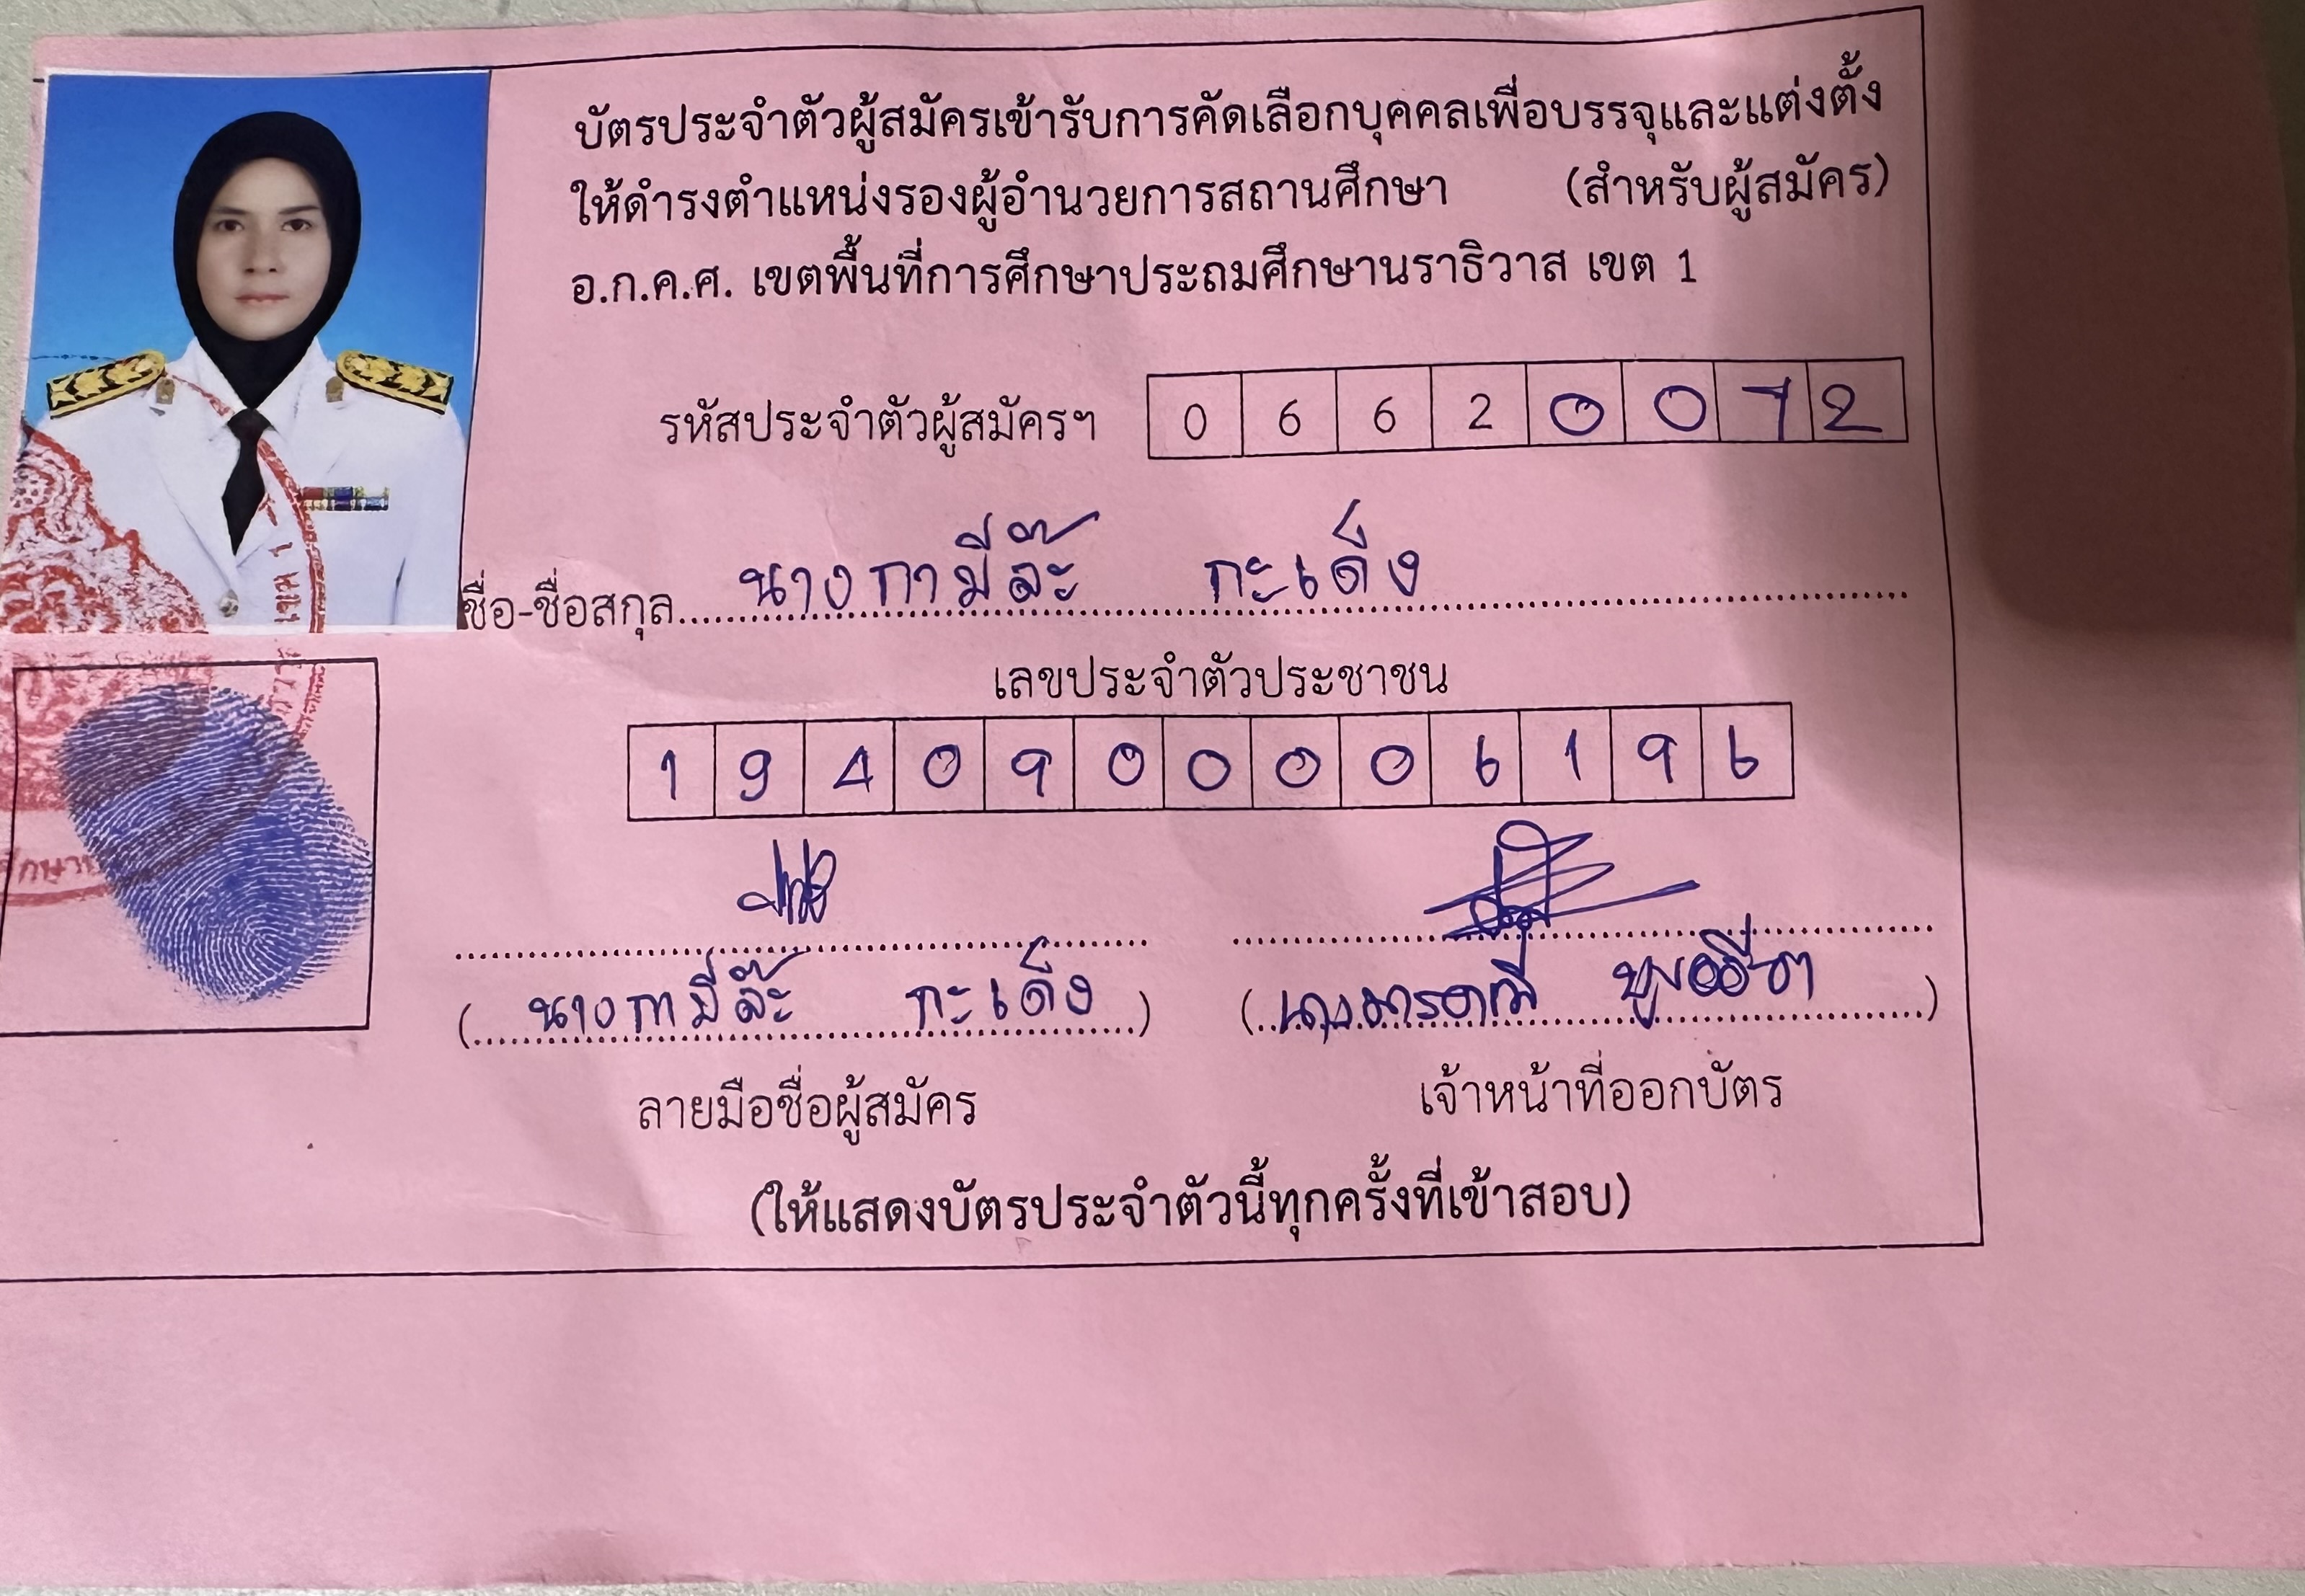 บัตรประจำตัวผู้สมัครเข้ารับการคัดเลือกบุคคลเพื่อบรรจุและแต่งตั้ง
ให้ดำรงตำแหน่งรองผู้อำนวยการสถานศึกษา (สำหรับผู้สมัคร)
อ.ก.ค.ศ. เขตพื้นที่การศึกษาประถมศึกษานราธิวาส เขต 1
รหัสประจำตัวผู้สมัครฯ 0 6 6 2 0 0 7 2
ชื่อ-ชื่อสกุล นางกามีล๊ะ กะเด็ง
เลขประจำตัวประชาชน
1 9 4 0 9 0 0 0 0 6 1 9 6
(นางกามีล๊ะ กะเด็ง) ( )
ลายมือชื่อผู้สมัคร เจ้าหน้าที่ออกบัตร
(ให้แสดงบัตรประจำตัวนี้ทุกครั้งที่เข้าสอบ)
เขต 1